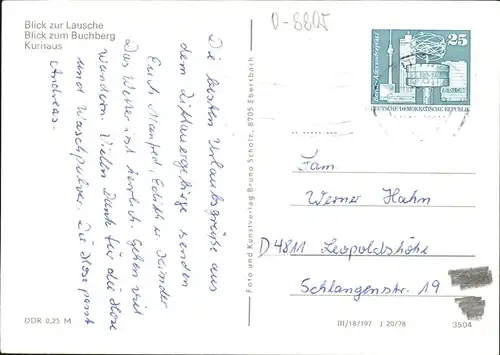 Blick zur Lausche
Blick zum Buchberg
Kurhaus
O-8805
Die besten Urlaubsgrüße aus
dem Zittauergebirge senden
Euch Manfred, Edith u. Kinder
Das Wetter ist herrlich. Gehen viel
wandern. Vielen Dank für die Hose
und Waschpulver. Die Hose passt
Andreas.
Foto und Kunstverlag Bruno Scholz, 8705 Ebersbach
25
DEUTSCHE DEMOKRATISCHE REPUBLIK
Fam
Werner Hahn
D 4811 Leopoldshöhe
Schlangenstr. 19
DDR 0,25 M
III/18/197 J 20/78
3504